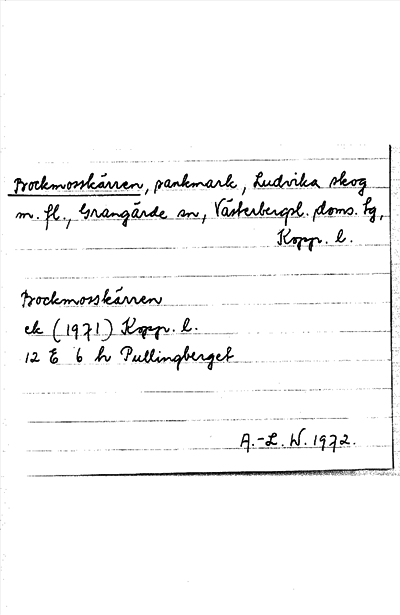 Bockmosskärren, sankmark, Ludvika skog
m. fl., Grangärde sn, Västerbergsl. doms. tg,
Kopp. l.
Bockmosskärren
ek (1971) Kopp. l.
12 E 6 h Pullingberget
A.-L. W. 1972.